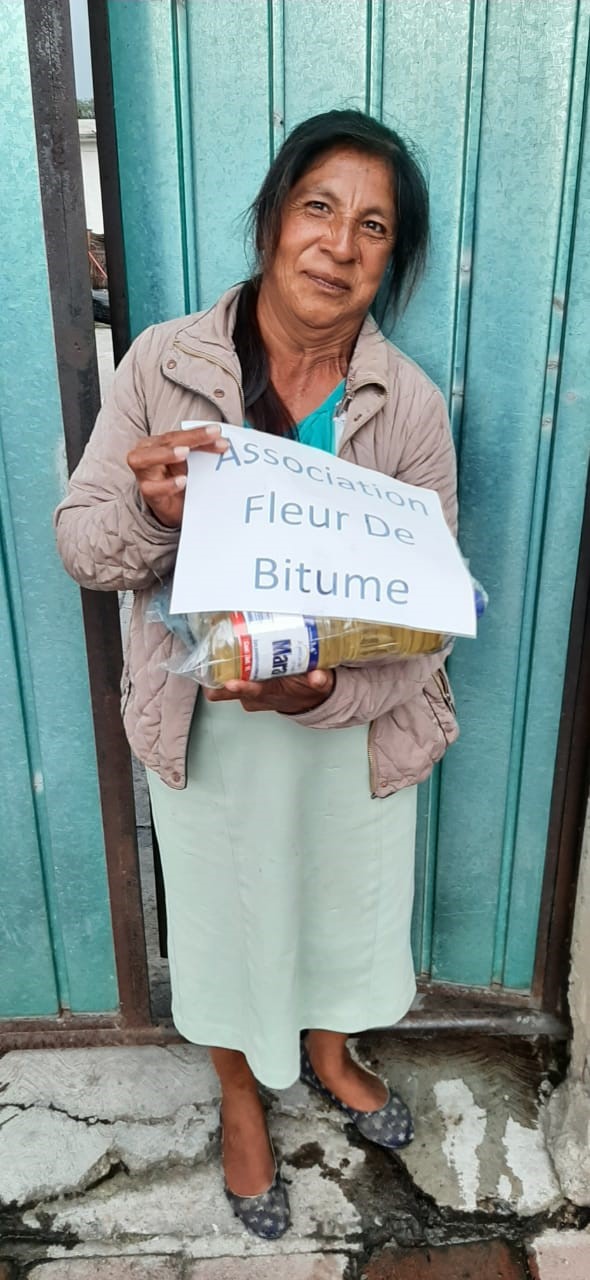 Association
Fleur De
Bitume
Mara